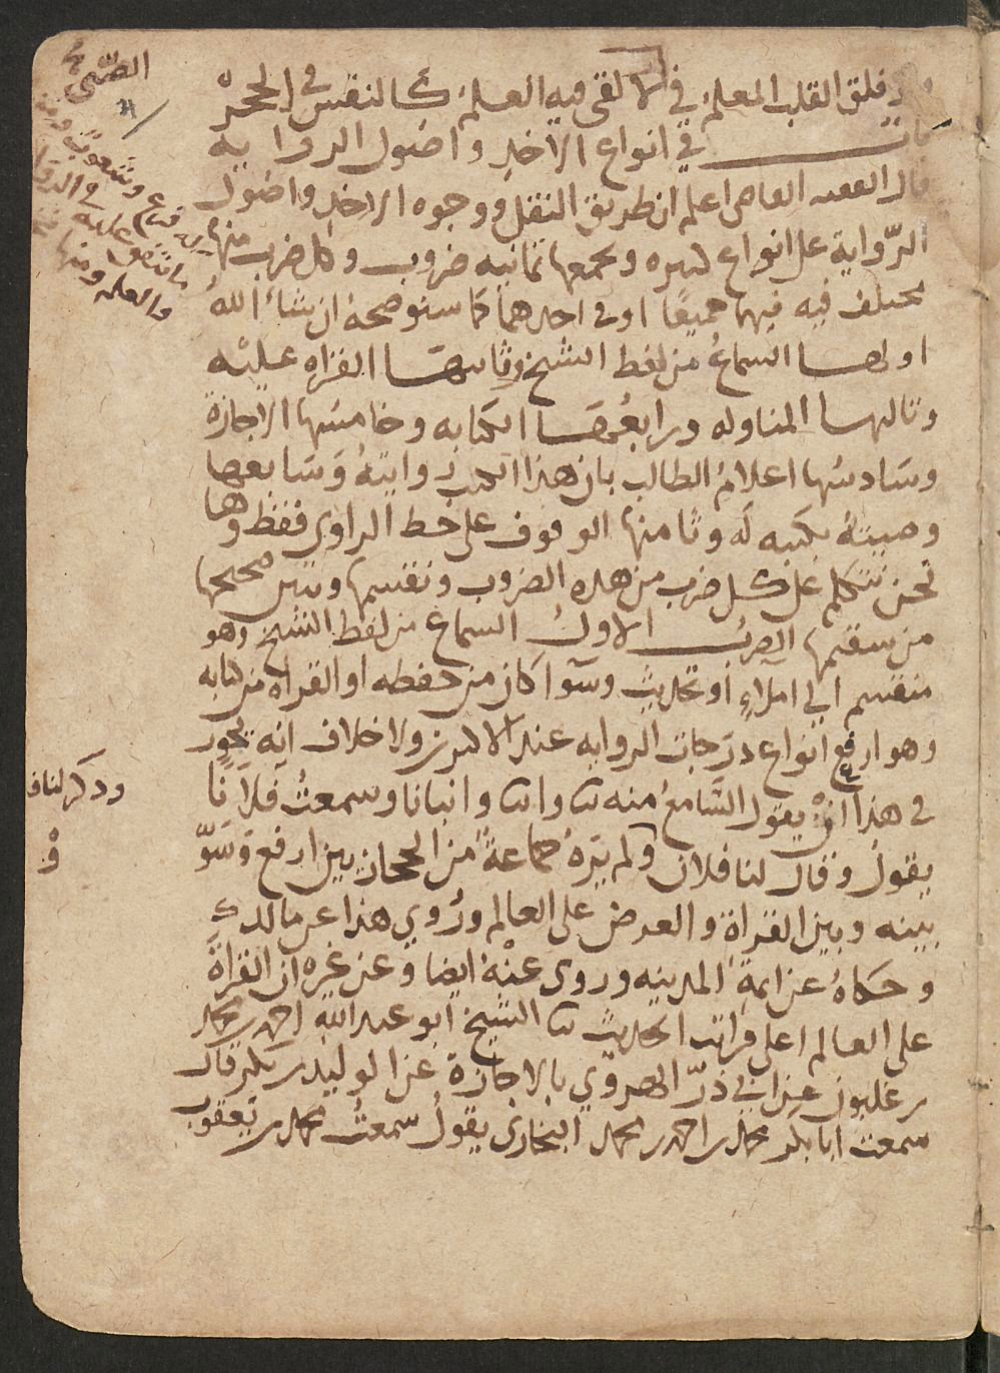 ولو فلق القلب المعلم في الا لقي فيه العلم كالنقش في الحجر
باب في انواع الاخذ واصول الرواية
قال الفقيه القاضي اعلم ان طريق النقل ووجوه الاخذ واصول
الرواية على انواع كثيره ويجمعها ثمانيه ضروب وكل ضرب منها
يختلف فيه فيهما جميعا او في احدهما كما سنوضحه ان شاء الله
اولها السماع من لفظ الشيخ وثانيها القراة عليه
وثالثها المناوله ورابعها الكتابه وخامسها الاجازة
وسادسها اعلام الطالب بان هذا الكتب روايته وسابعها
وصيته بكتبه له وثامنها الوقوف على خط الراوي فقط وها
نحن نتكلم على كل ضرب من هذه الضروب ونقسمها ونبين صحيحها
من سقيمها الضرب الاول السماع من لفظ الشيخ وهو
منقسم الى املاء او تحديث وسوا كان من حفظه او القراة من كتابه
وهو ارفع انواع درجات الروايه عند الاكثرين ولا خلاف انه يجوز
في هذا ان يقول السامع منه ثنا وانا وانبانا وسمعت فلانا
يقول وقال لنا فلان ولم يره جماعة من الحجازيين ارفع وسوّ
بينه وبين القراة والعرض على العالم وروي هذا عن مالك
وحكاه عن ايمة المدينه وروى عنه ايضا وعن غيره ان القراة
على العالم اعلى مراتب الحديث ثنا الشيخ ابو عبد الله احمد بن محمد
بن غلبون عن ابي ذر الهروي بالاجازة عن الوليد بن بكر قال
سمعت ابا بكر محمد بن احمد بن محمد البخاري يقول سمعت محمد بن يعقوب
الضبي
وشعوب
والعلم ومنها
وذكر لنا ف